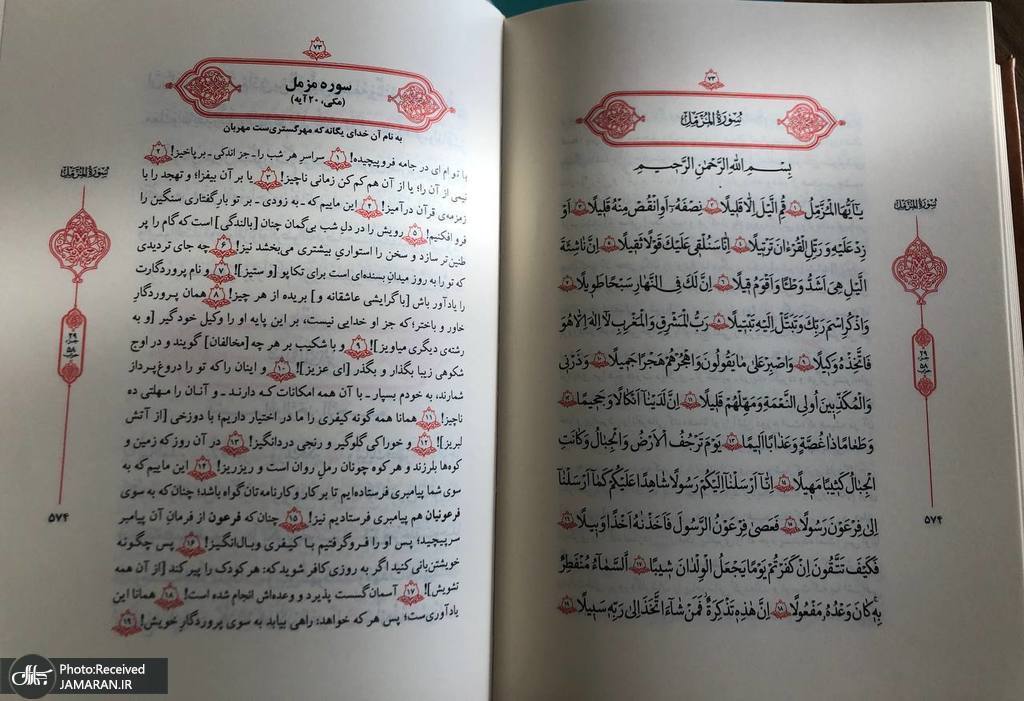 ۷۳
سُورَةُ المُزَّمِّلِ
بِسْمِ اللهِ الرَّحْمٰنِ الرَّحِيمِ
يَـٰٓأَيُّهَا الْمُزَّمِّلُ ۱ قُمِ الَّيْلَ إِلَّا قَلِيلًا ۲ نِصْفَهُۥٓ أَوِ انْقُصْ مِنْهُ قَلِيلًا ۳ أَوْ
زِدْ عَلَيْهِ وَ رَتِّلِ الْقُرْءَانَ تَرْتِيلًا ۴ إِنَّا سَنُلْقِي عَلَيْكَ قَوْلًا ثَقِيلًا ۵ إِنَّ نَاشِئَةَ
الَّيْلِ هِيَ أَشَدُّ وَطْئًا وَ أَقْوَمُ قِيلًا ۶ إِنَّ لَكَ فِي النَّهَارِ سَبْحًا طَوِيلًا ۷
وَ اذْكُرِ اسْمَ رَبِّكَ وَ تَبَتَّلْ إِلَيْهِ تَبْتِيلًا ۸ رَبُّ الْمَشْرِقِ وَ الْمَغْرِبِ لَآ إِلَـٰهَ إِلَّا هُوَ
فَاتَّخِذْهُ وَكِيلًا ۹ وَ اصْبِرْ عَلَىٰ مَا يَقُولُونَ وَ اهْجُرْهُمْ هَجْرًا جَمِيلًا ۱۰ وَ ذَرْنِي
وَ الْمُكَذِّبِينَ أُولِي النَّعْمَةِ وَ مَهِّلْهُمْ قَلِيلًا ۱۱ إِنَّ لَدَيْنَآ أَنْكَالًا وَ جَحِيمًا ۱۲
وَ طَعَامًا ذَا غُصَّةٍ وَ عَذَابًا أَلِيمًا ۱۳ يَوْمَ تَرْجُفُ الْأَرْضُ وَ الْجِبَالُ وَ كَانَتِ
الْجِبَالُ كَثِيبًا مَهِيلًا ۱۴ إِنَّآ أَرْسَلْنَآ إِلَيْكُمْ رَسُولًا شَاهِدًا عَلَيْكُمْ كَمَآ أَرْسَلْنَآ
إِلَىٰ فِرْعَوْنَ رَسُولًا ۱۵ فَعَصَىٰ فِرْعَوْنُ الرَّسُولَ فَأَخَذْنَـٰهُ أَخْذًا وَبِيلًا ۱۶
فَكَيْفَ تَتَّقُونَ إِنْ كَفَرْتُمْ يَوْمًا يَجْعَلُ الْوِلْدَانَ شِيبًا ۱۷ السَّمَآءُ مُنْفَطِرٌۢ
بِهِۦ كَانَ وَعْدُهُۥ مَفْعُولًا ۱۸ إِنَّ هَـٰذِهِۦ تَذْكِرَةٌ فَمَنْ شَآءَ اتَّخَذَ إِلَىٰ رَبِّهِۦ سَبِيلًا ۱۹
سُورَةُ المُزَّمِّلِ
۲۹
جزء
۵۸
حزب
۵۷۴
۷۳
سوره مزمل
(مکی، ۲۰ آیه)
به نام آن خدای یگانه که مهرگستری‌ست مهربان
با توام ای در جامه فروپیچیده! ۱ سراسرِ هر شب را ـ جز اندکی ـ بر پاخیز! ۲
نیمی از آن را؛ یا از آن هم کم کن زمانی ناچیز! ۳ یا بر آن بیفزا؛ و تهجد را با
زمزمه‌ی قرآن درآمیز! ۴ این ماییم که ـ به زودی ـ بر تو بارِ گفتاری سنگین را
فرو افکنیم! ۵ رویش را در دلِ شب بی‌گمان چنان [بالندگی] است که گام را پر
طنین‌تر سازد و سخن را استواری بیشتری می‌بخشد نیز! ۶ چه جای تردیدی
که تو را به روز میدانِ بسنده‌ای است برای تکاپو [و ستیز]! ۷ و نام پروردگارت
را یادآور باش [با گرایشی عاشقانه و] بریده از هر چیز! ۸ همان پروردگارِ
خاور و باختر؛ که جز او خدایی نیست، بر این پایه او را وکیل خود گیر [و به
رشته‌ی دیگری میاویز]! ۹ و با شکیب بر هر چه [مخالفان] گویند و در اوج
شکوهی زیبا بگذار و بگذر [ای عزیز]! ۱۰ و اینان را که تو را دروغ‌پرداز
شمارند، به خودم بسپار ـ با آن همه امکانات که دارند ـ و آنان را مهلتی ده
ناچیز! ۱۱ همانا همه گونه کیفری را ما در اختیار داریم؛ با دوزخی [از آتش
لبریز]! ۱۲ و خوراکی گلوگیر و رنجی دردانگیز! ۱۳ در آن روز که زمین و
کوه‌ها بلرزند و هر کوه چونان رملِ روان است و ریزریز! ۱۴ این ماییم که به
سوی شما پیامبری فرستاده‌ایم تا بر کار و کارنامه‌تان گواه باشد؛ چنان که به سوی
فرعونیان هم پیامبری فرستادیم نیز! ۱۵ چنان که فرعون از فرمانِ آن پیامبر
سرپیچید؛ پس او را فروگرفتیم با کیفری وبال‌انگیز! ۱۶ پس چگونه
خویشتن‌بانی کنید اگر به روزی کافر شوید که: هر کودک را پیر کند [از آن همه
تشویش]! ۱۷ آسمان گسست پذیرد و وعده‌اش انجام شده است! ۱۸ همانا این
یادآوری‌ست؛ پس هر که خواهد: راهی بیابد به سوی پروردگارِ خویش! ۱۹
سُورَةُ المُزَّمِّلِ
۲۹
جزء
۵۸
حزب
۵۷۴
جماران
Photo:Received
JAMARAN.IR